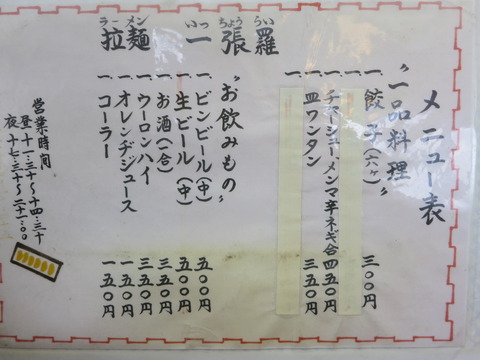 メニュー表
〝一品料理〟
一、餃子(六ヶ) 三〇〇円
一、
一、チャーシューメンマ辛ネギ合 四五〇円
一、皿ワンタン 三五〇円
一、
〝お飲みもの〟
一、ビンビール(中) 五〇〇円
一、生ビール(中) 五〇〇円
一、お酒(一合) 三五〇円
一、ウーロンハイ 三五〇円
一、オレンヂジュース 一五〇円
一、コーラー 一五〇円
ラーメン いっちょうらい
拉麺 一張羅
営業時間
昼十一:三十〜十四:三十
夜十七:三十〜二十一:〇〇